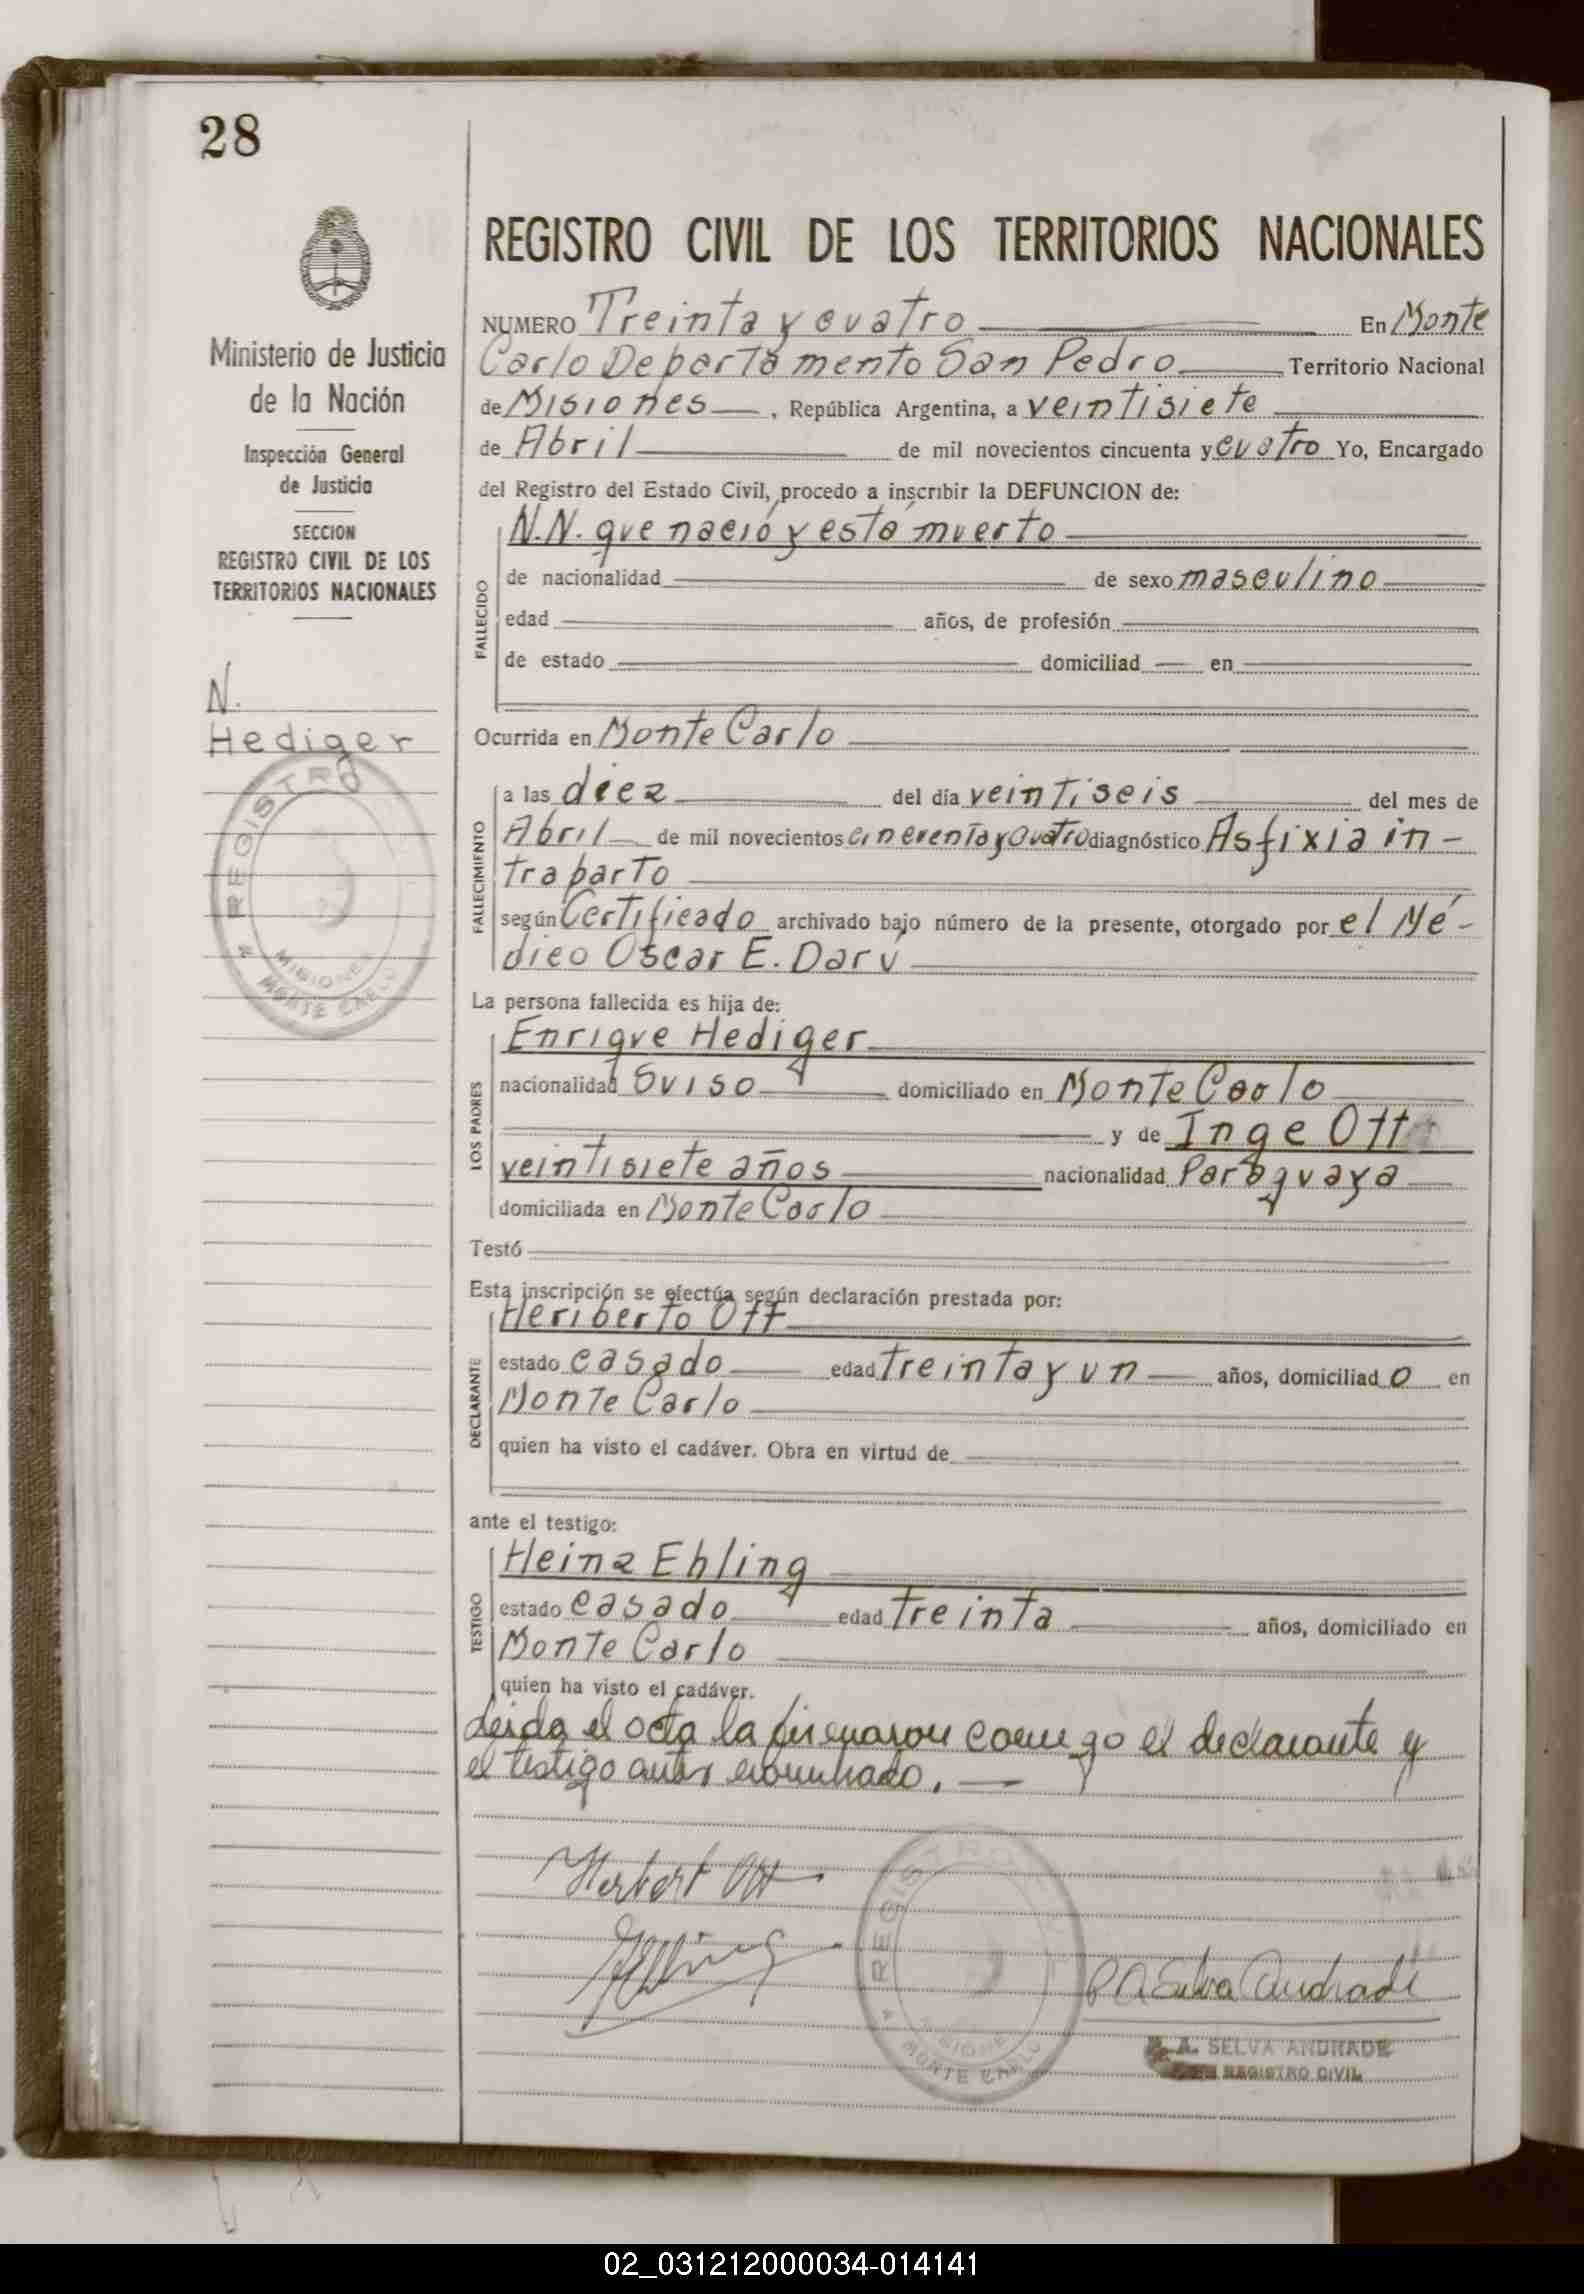 28
Ministerio de Justicia
de la Nación
Inspección General
de Justicia
SECCION
REGISTRO CIVIL DE LOS
TERRITORIOS NACIONALES
N.
Hediger
REGISTRO
MISIONES
MONTE CARLO
REGISTRO CIVIL DE LOS TERRITORIOS NACIONALES
NUMERO Treinta y cuatro En Monte
Carlo Departamento San Pedro Territorio Nacional
de Misiones, República Argentina, a veintisiete
de Abril de mil novecientos cincuenta y cuatro Yo, Encargado
del Registro del Estado Civil, procedo a inscribir la DEFUNCION de:
FALLECIDO
N.N. que nació y está muerto
de nacionalidad de sexo masculino
edad años, de profesión
de estado domiciliad en
Ocurrida en Monte Carlo
FALLECIMIENTO
a las diez del día veintiseis del mes de
Abril de mil novecientos cincuenta y cuatro diagnóstico Asfixia in-
traparto
según Certificado archivado bajo número de la presente, otorgado por el Mé-
dico Oscar E. Darú
La persona fallecida es hija de:
LOS PADRES
Enrique Hediger
nacionalidad Suiso domiciliado en Monte Carlo
y de Inge Ott
veintisiete años nacionalidad Paraguaya
domiciliada en Monte Carlo
Testó
Esta inscripción se efectúa según declaración prestada por:
DECLARANTE
Heriberto Ott
estado casado edad treinta y un años, domiciliado en
Monte Carlo
quien ha visto el cadáver. Obra en virtud de
ante el testigo:
TESTIGO
Heinz Ehling
estado casado edad treinta años, domiciliado en
Monte Carlo
quien ha visto el cadáver.
Leida el acta la firmaron conmigo el declarante y
el testigo antes nombrado.
Herbert Ott
HEhling
REGISTRO
MISIONES
MONTE CARLO
P A Selva Andrade
P. A. SELVA ANDRADE
REGISTRO CIVIL
02_031212000034-014141